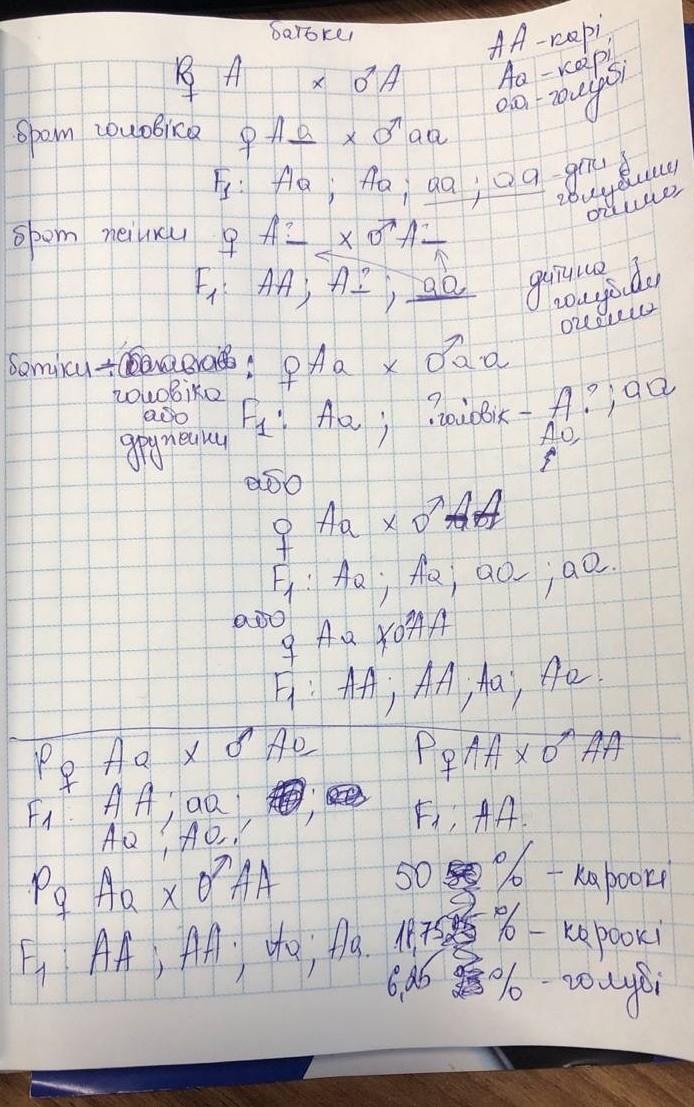 батьки
P ♀ A × ♂ A
AA - карі
Aa - карі
aa - голубі
брат чоловіка ♀ Aa × ♂ aa
F1: Aa ; Aa ; aa ; aa - діти з
голубими
очима
брат жінки ♀ A? × ♂ A?
F1: AA ; A? ; aa
дитина з
голубими
очима
батьки
чоловіка
або
дружини
: ♀ Aa × ♂ aa
F1: Aa ; ? чоловік - A? ; aa
Aa
або
♀ Aa × ♂
F1: Aa ; Aa ; aa ; aa.
або
♀ Aa × ♂ AA
F1: AA ; AA ; Aa ; Aa.
P ♀ Aa × ♂ Aa
F1: AA ; aa ;
Aa ; Aa.
P ♀ AA × ♂ AA
F1: AA.
P ♀ Aa × ♂ AA
F1: AA ; AA ; Aa ; Aa.
50 % - кароокі
18,75 % - кароокі
6,25 % - голубі